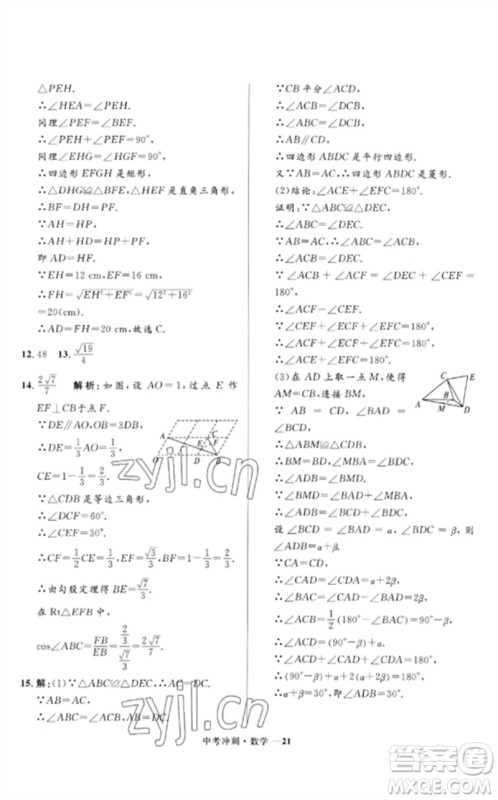 △PEH.
∴∠HEA=∠PEH.
同理∠PEF=∠BEF.
∴∠PEH+∠PEF=90°,
同理∠EHG=∠HGF=90°,
∴四边形 EFGH 是矩形,
∴△DHG≌△BFE,△HEF是直角三角形,
∴BF=DH=PF.
∵AH=HP,
∴AD=AH+DH=HP+PF,
即 AD=HF.
∵EH=12 cm,EF=16 cm,
∴FH=√(EH²+EF²)=√(12²+16²)
=20(cm).
∴AD=FH=20 cm. 故选 C.
12. 48 13. √19/4
14. 2√7/7 解析:如图,设 AO=1,过点 E 作
EF⊥CD于点 F.
∵DE∥AO,OB=3DB,
∴DE=1/3AO=1/3,
CE=1-1/3=2/3.
∵△CDB 是等边三角形,
∴∠DCF=60°.
∴∠CEF=30°,
∴CF=1/2CE=1/3,BF=1-1/3=2/3.
∴由勾股定理得 BE=√7/3.
在 Rt△EFB 中,
cos∠ABC=FB/EB=(2/3)/(√7/3)=2√7/7.
15. 解:(1)∵△ABC≌△DEC,AC=DC.
∵AB=AC,
∴∠ABC=∠ACB,AB=DC.
∵CB 平分∠ACD,
∴∠ACB=∠DCB,
∴∠ABC=∠DCB.
∴AB∥CD,
∴四边形 ABDC 是平行四边形.
又∵AB=AC,∴四边形 ABDC 是菱形.
(2)结论:∠ACE+∠EFC=180°.
证明:∵△ABC≌△DEC,
∴∠ABC=∠DEC,
∴∠ACB=∠DEC.
∵∠ACB+∠ACF=∠DEC+∠CEF=
180°,
∴∠ACF=∠CEF.
∵∠CEF+∠ECF+∠EFC=180°,
∴∠ACF+∠ECF+∠EFC=180°,
∴∠ACE+∠EFC=180°.
(3)在 AD 上取一点 M,使得
AM=CB,连接 BM.
∵AB=CD,∠BAD=∠BCD,
∴△ABM≌△CDB,
∴BM=BD,∠MBA=∠BDC.
∴∠ADB=∠BMD.
∵∠BMD=∠BAD+∠MBA,
∴∠ADB=∠BCD+∠BDC.
设∠BCD=∠BAD=α,∠BDC=β,
则∠ADB=α+β.
∵CA=CD,
∴∠CAD=∠CDA=α+2β,
∴∠BAC=∠CAD-∠BAD=2β.
∴∠ACB=1/2(180°-∠BAC)=90°-β,
∴∠ACD=(90°-β)+α.
∵∠ACD+∠CAD+∠CDA=180°,
∴(90°-β)+α+2(α+2β)=180°,
∴α+β=30°,即∠ADB=30°.
A
C
E
F
O
D
B
zyjl.cn
zyjl.cn
中考冲刺·数学 —21
答案圈
MXQE.COM